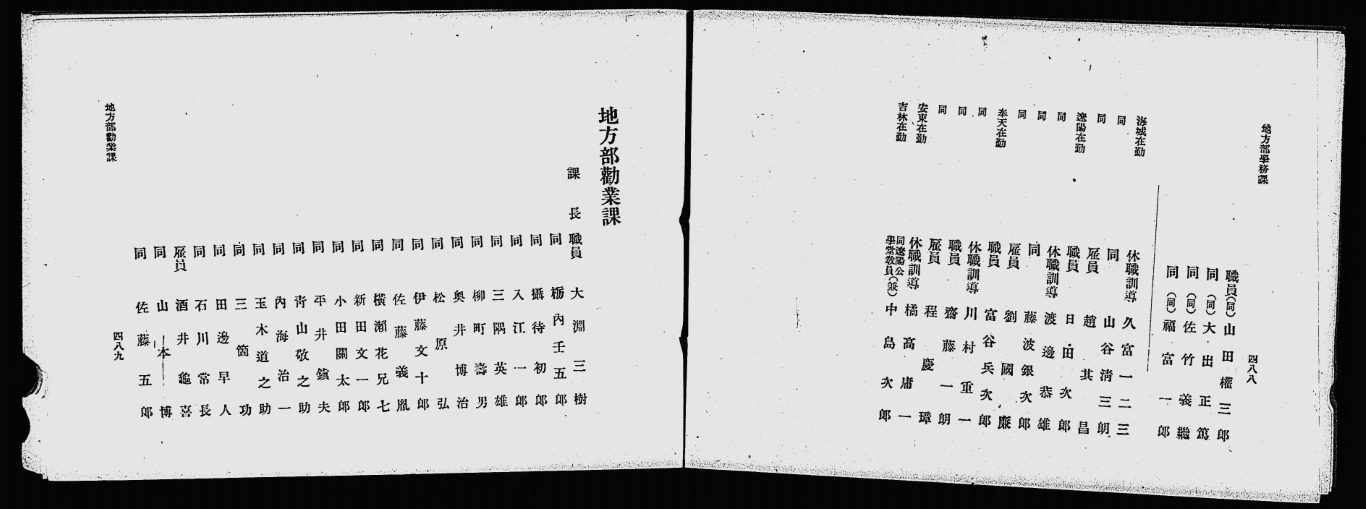 地方部學務課
四八八
職員(同)山田權三郎
同(同)大出正篤
同(同)佐竹義繼
同(同)福富一郎
海城在勤 休職訓導 久富一二三
同 同 山谷清三朗
同 雇員 趙其昌
遼陽在勤 職員 日田次郎
同 休職訓導 渡邊恭雄
同 同 藤波銀次郎
同 雇員 劉國廉
奉天在勤 職員 富谷兵次郎
同 休職訓導 川村重一
同 職員 齋藤一朗
同 雇員 程慶璋
安東在勤 休職訓導 橘高庸一
吉林在勤 同遼陽公學堂教員(兼) 中島次郎
地方部勸業課
課長 職員 大淵三樹
同 栃内壬五郎
同 攝待初郎
同 入江一郎
同 三隅英雄
同 柳町壽男
同 奥井博治
同 松原弘
同 伊藤文十郎
同 佐藤義胤
同 横瀬花兄七
同 新田文一郎
同 小田關太郎
同 平井鎮夫
同 青山敬之助
同 内海治一
同 玉木道之助
同 三箇功
同 田邊早人
同 石川常長
雇員 酒井龜喜
同 山本博
同 佐藤五郎
地方部勸業課
四八九